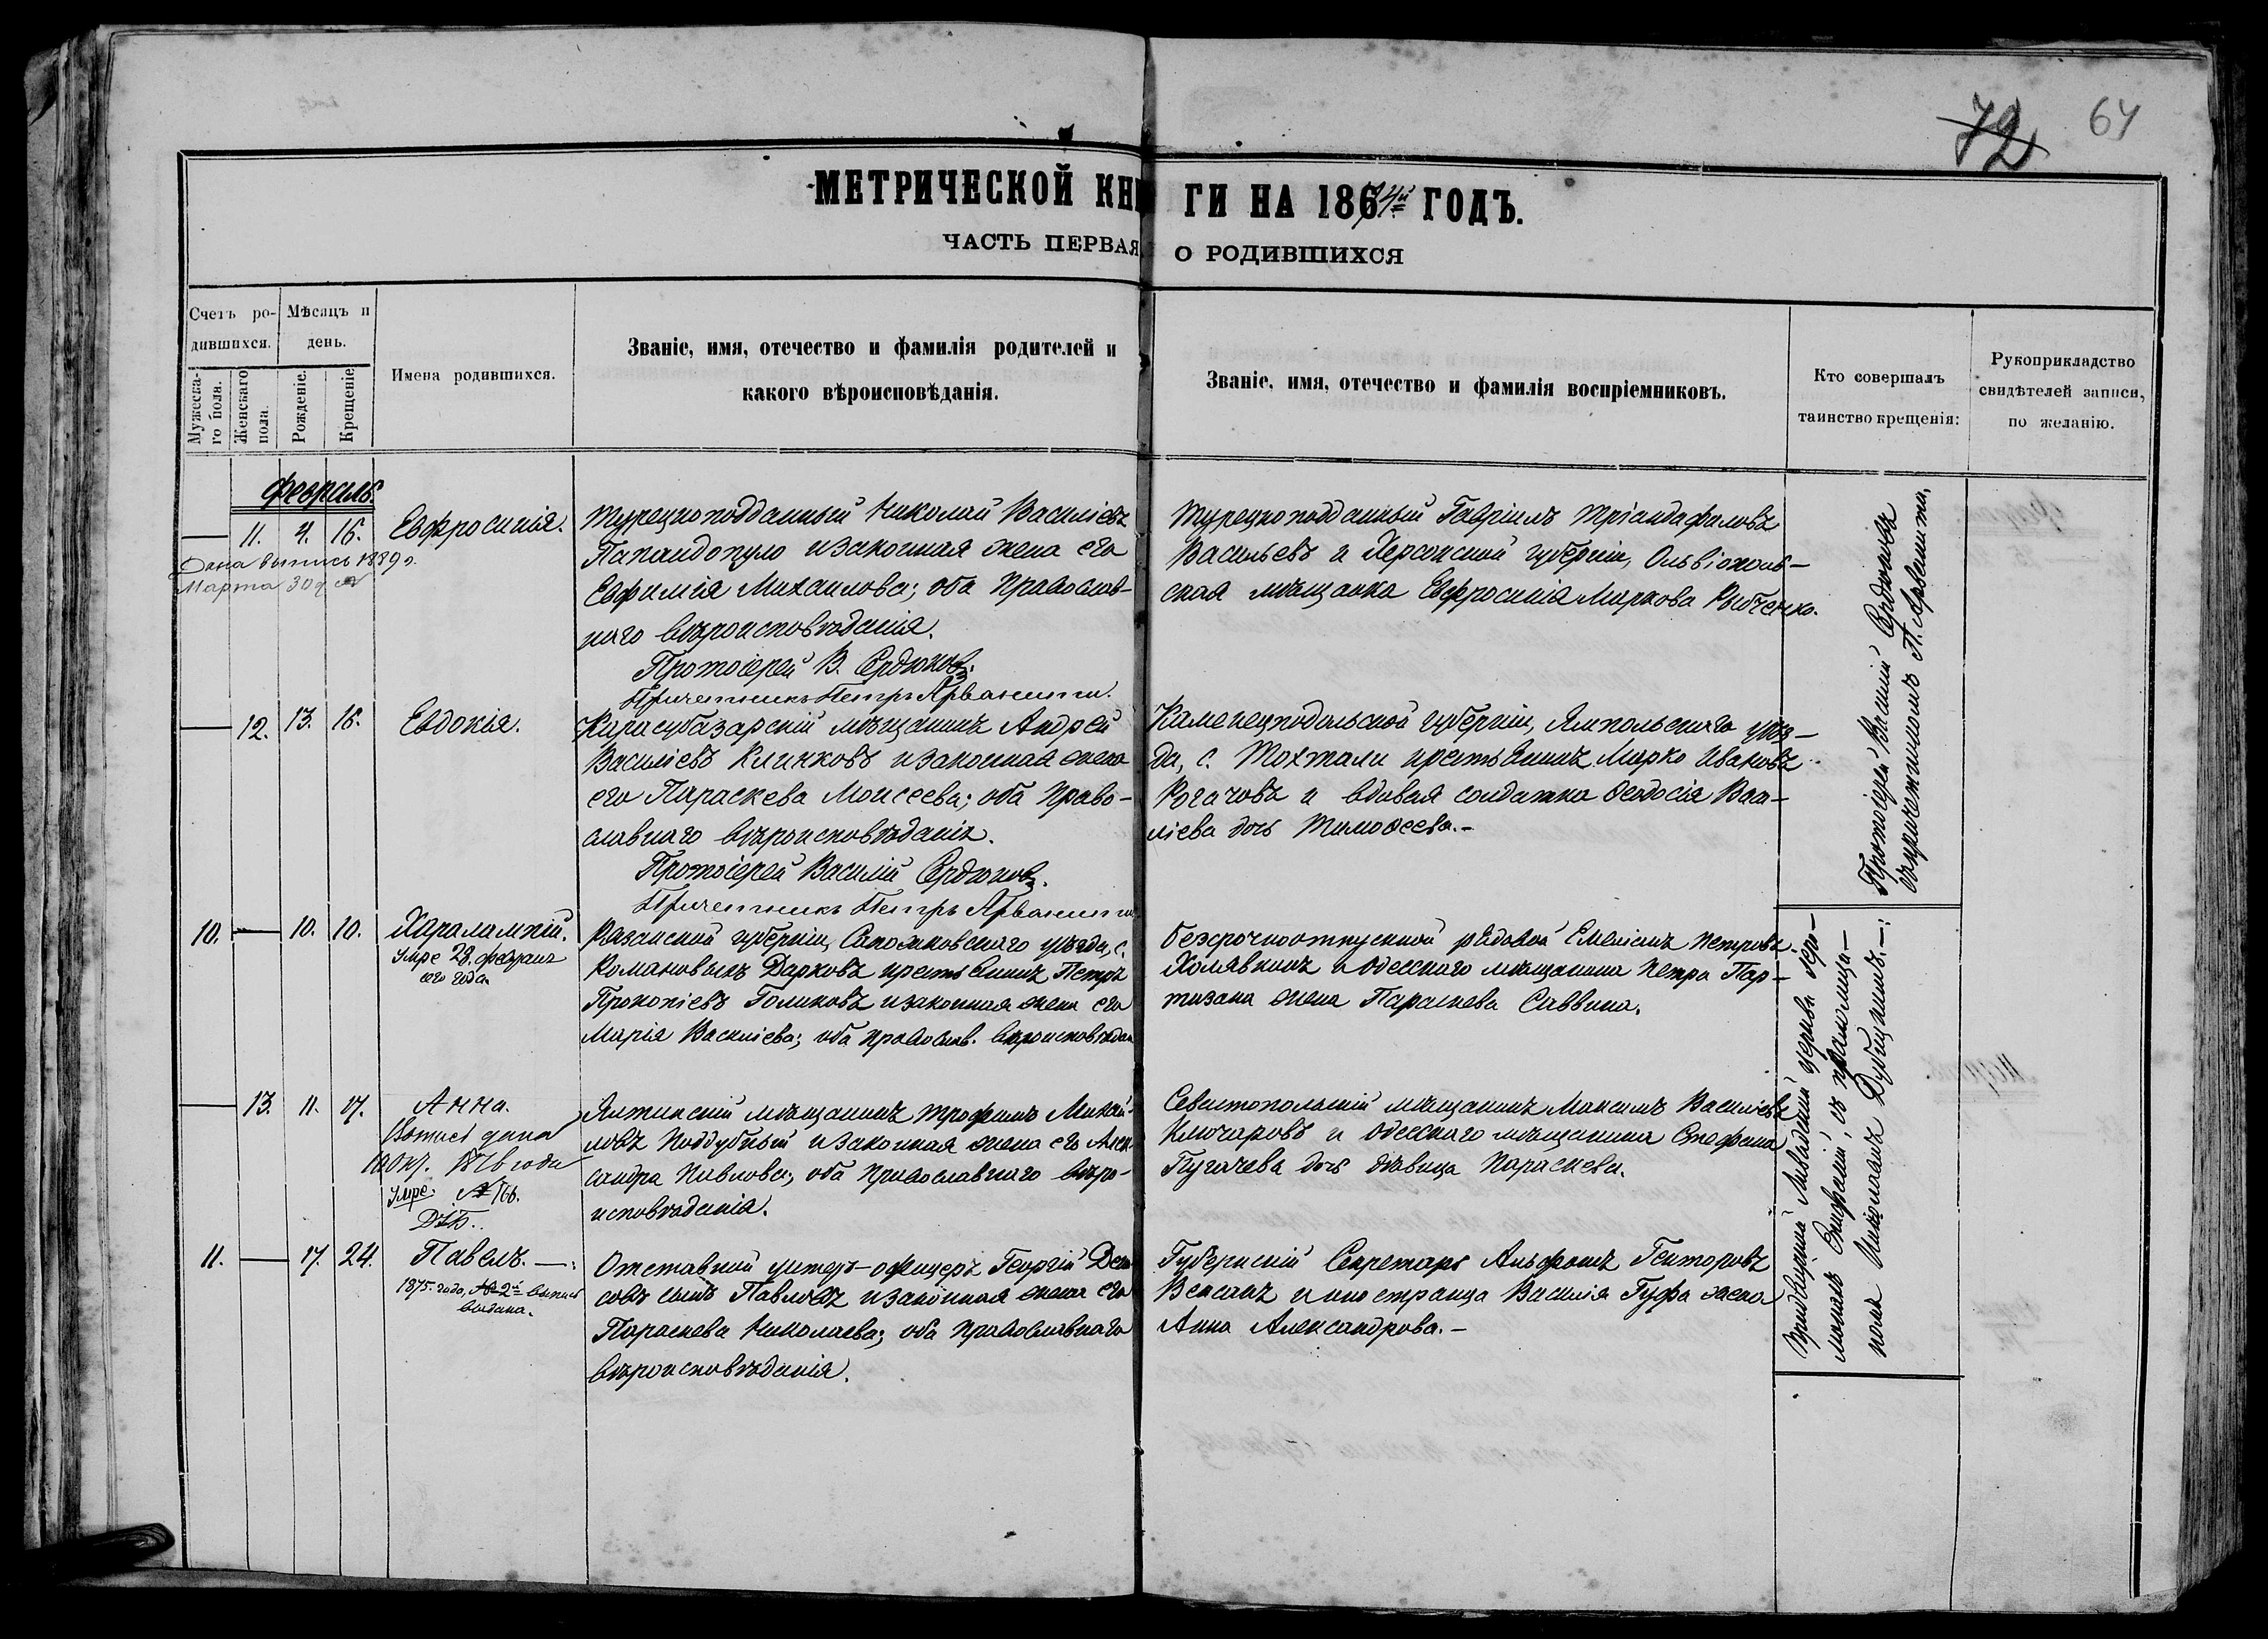 72 64
МЕТРИЧЕСКОЙ КНИГИ НА 1874й ГОДЪ.
ЧАСТЬ ПЕРВАЯ О РОДИВШИХСЯ
Счетъ ро-
дившихся.
Мужеска-
го пола.
Женскаго
пола.
Мѣсяцъ и
день.
Рожденіе.
Крещеніе
Имена родившихся.
Званіе, имя, отечество и фамилія родителей и
какого вѣроисповѣданія.
Званіе, имя, отечество и фамилія воспріемниковъ.
Кто совершалъ
таинство крещенія:
Рукоприкладство
свидѣтелей записи,
по желанію.
Февраль.
— 11. 4. 16. Евфросинія.
Дана выпись 1889 г.
Марта 30 д
Турецкоподданный Николай Василіевъ
Папандопуло и законная жена его
Евфимія Михаилова; оба Православ-
наго вѣроисповѣданія.
Протоіерей В. Сердюковъ.
Причетникъ Петръ Арванити.
Турецкоподданный Гавріилъ Тріандафиловъ
Васильевъ и Херсонской губерніи, Ольвіополь-
ская мѣщанка Евфросинія Маркова Рыбченко.
— 12. 13. 16. Евдокія.
Карасубазарскій мѣщанинъ Андрей
Василіевъ Клинковъ и законная жена
его Параскева Моисеева; оба Право-
славнаго вѣроисповѣданія.
Протоіерей Василій Сердюковъ.
Причетникъ Петръ Арванити
Каменецподольской губерніи, Ямпольскаго уѣз-
да, с. Тохтали крестьянинъ Марко Ивановъ
Рогачовъ и вдовая солдатка Ѳеодосія Васи-
ліева дочь Тимоѳеева.-
Протоіерей Василій Сердюковъ
съ причетникомъ П. Арванити.
10. — 10. 10. Харалампій.
Умре 28. февраля
сего года.
Рязанской губерніи, Сапожковскаго уѣзда, с.
Романовыхъ Дарковъ крестьянинъ Петръ
Прокопіевъ Голиковъ и законная жена его
Марія Василіева; оба православ. вѣроисповѣдан
Безсрочноотпускной рядовой Емеліанъ Петровъ
Холявкинъ и Одесскаго мѣщанина Петра Пар-
тизана жена Параскева Саввина.
— 13. 11. 17. Анна.
Выпись дана
Окт. 1876 года
№ 166.
Умре.
Ялтинскій мѣщанинъ Трофимъ Михаи-
ловъ Поддубный и законная жена его Алек-
сандра Павлова; оба Православнаго вѣро-
исповѣданія.
Севастопольскій мѣщанинъ Максимъ Василіевъ
Ключаровъ и Одесскаго мѣщанина Стефана
Пугачева дочь дѣвица Параскева.
11. — 17. 24. Павелъ. —:
1875. года, № 2й выпись
выдана.
Отставной унтеръ-офицеръ Георгій Дени
совъ сынъ Павловъ и законная жена его
Параскева Николаева; оба Православнаго
вѣроисповѣданія.
Губернскій Секретарь Альфонсъ Гекторовъ
Венсанъ и иностранца Василія Гуфа жена
Анна Александрова.-
Придворной Ливадійской церкви Іеро-
монахъ Епифаній, съ
Дубицкимъ.—: